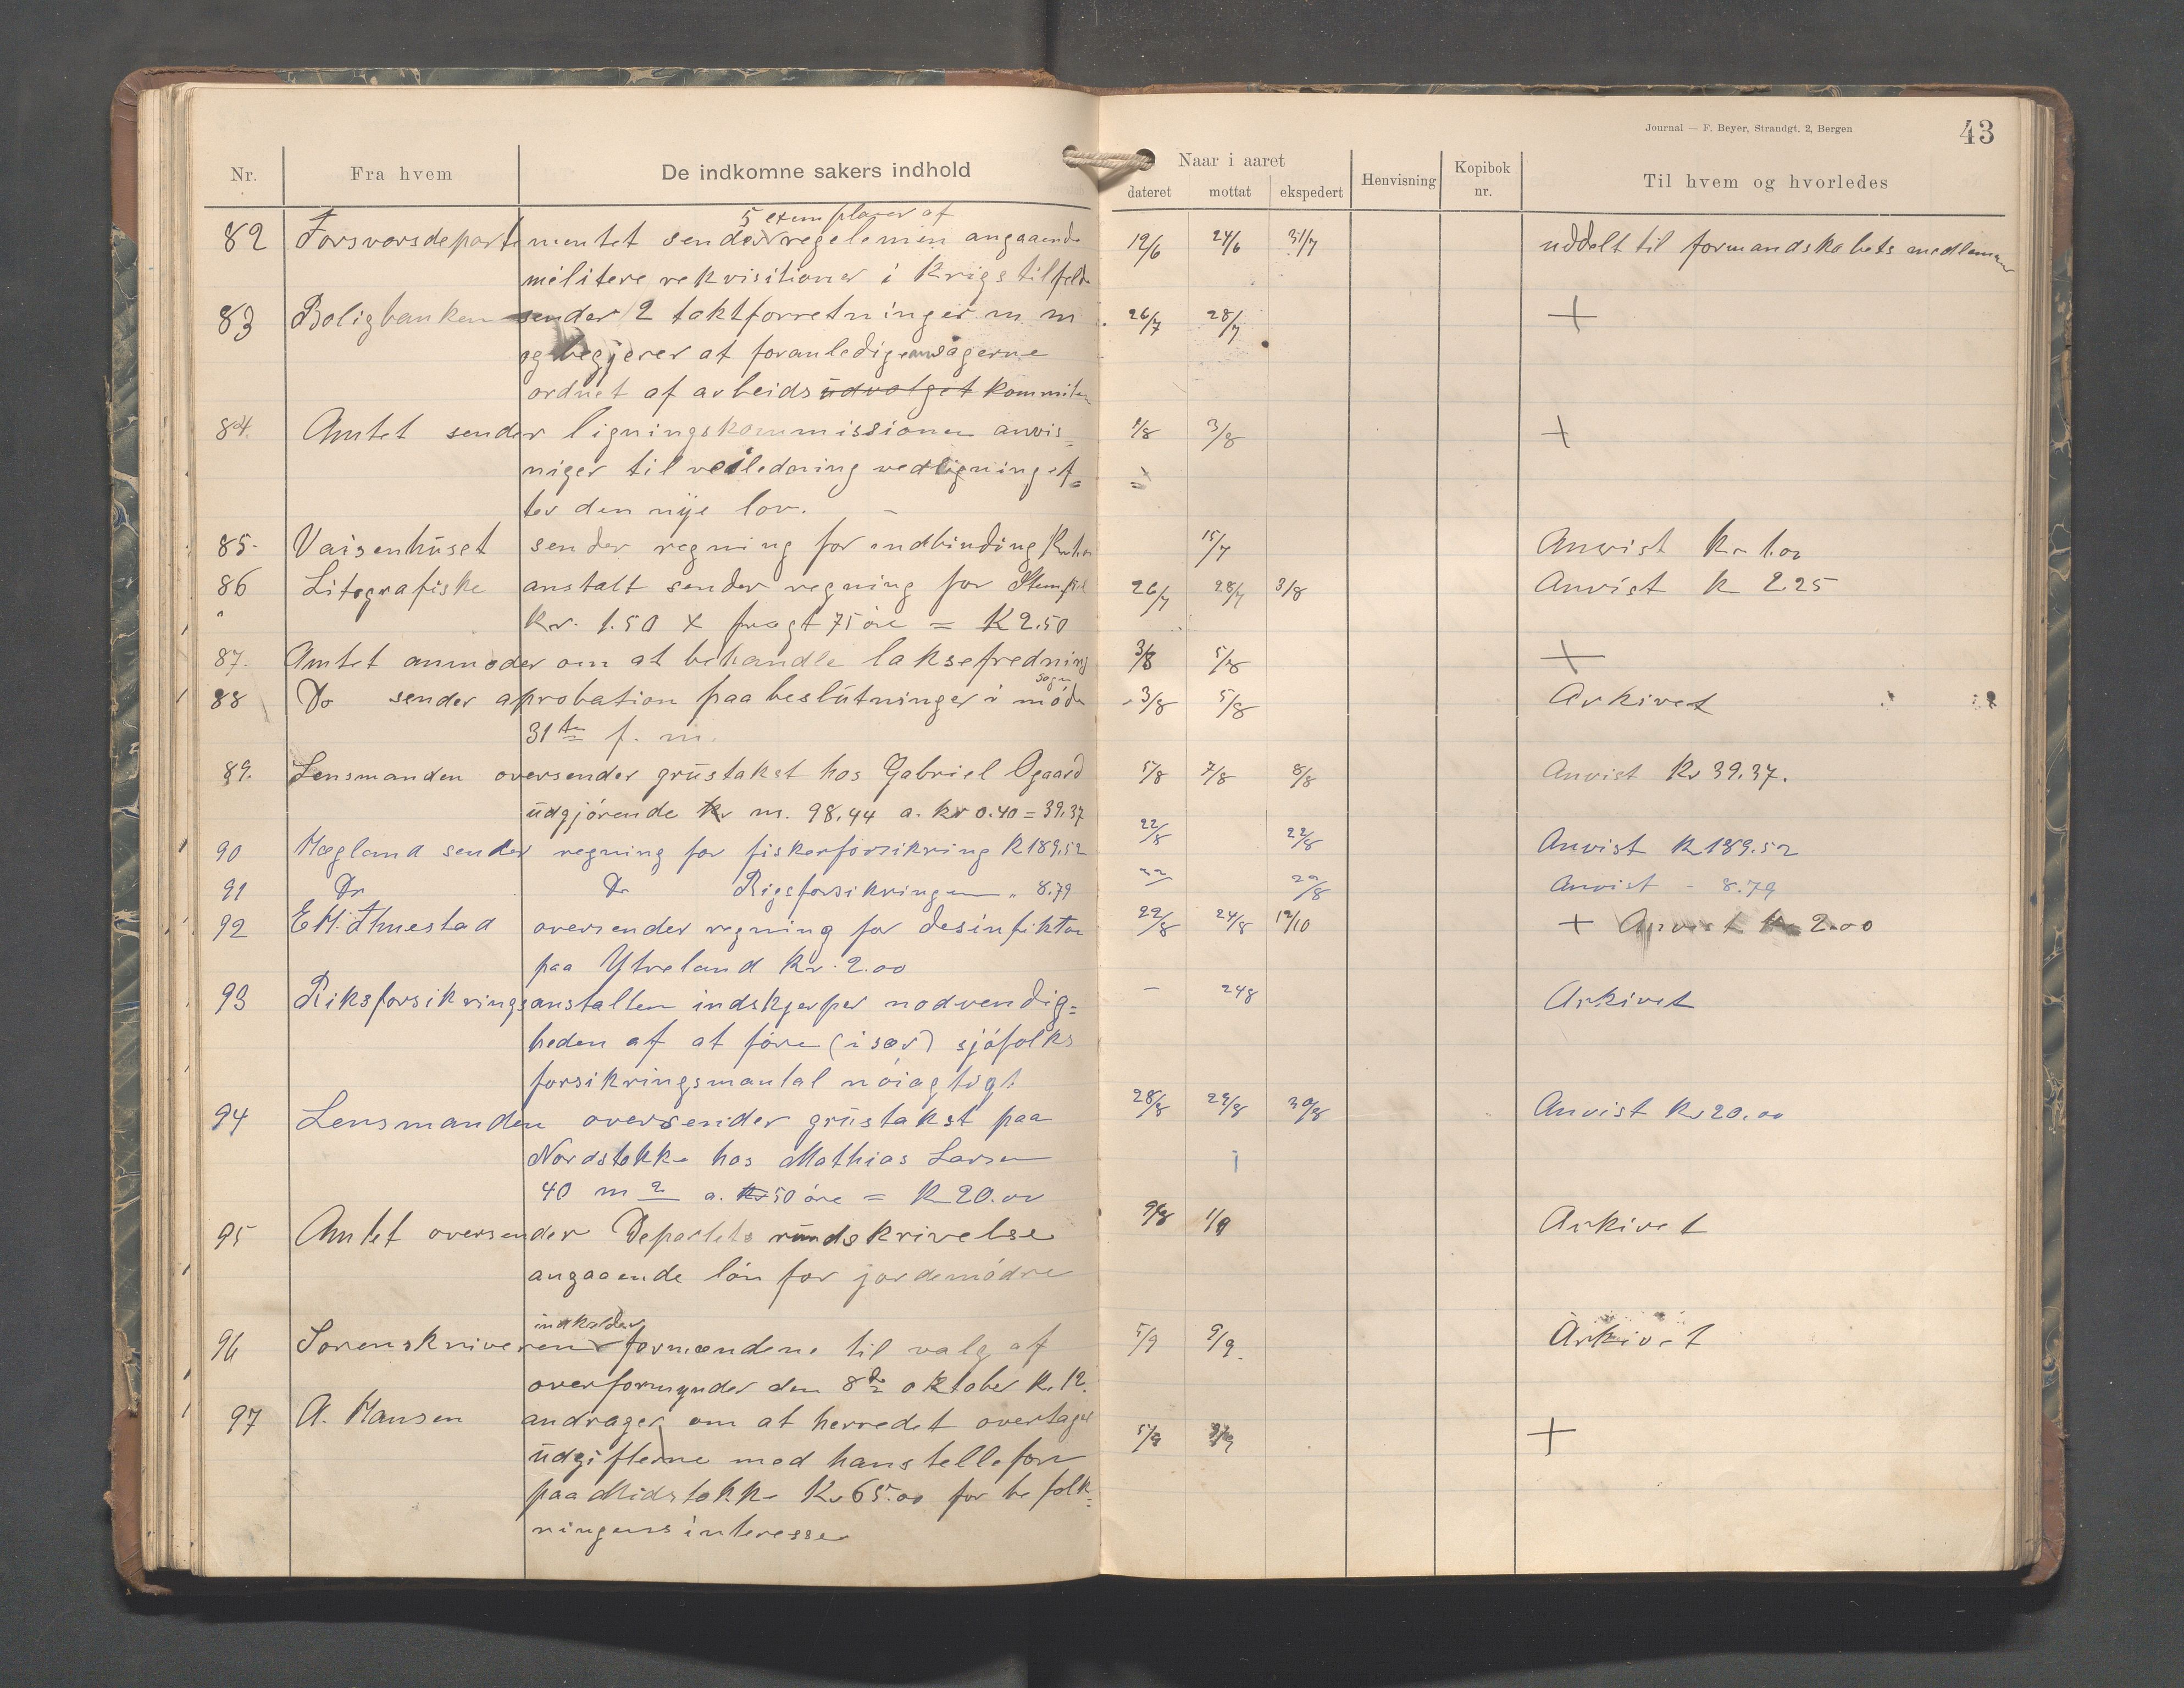 Journal — F. Beyer, Strandgt. 2, Bergen
43
Nr. Fra hvem De indkomne sakers indhold Naar i aaret dateret mottat ekspedert Henvisning Kopibok nr. Til hvem og hvorledes
5 exemplarer af
82 Forsvorsdepartementet sender regelemen angaaende 12/6 24/6 31/7 uddelt til formandskabets medlemmer
militere rekvisitioner i Krigstilfelde
83 Boligbanken sender 2 taktforretninger m m 26/7 28/7 +
og begjerer at foranledige sagerne
ordnet af arbeidsudvalget kommiten
84. Amtet sender ligningskommissionen anvis= 1/8 3/8 +
niger til veiledning ved ligning ef=
ter den nye lov.
85. Vaisenhuset sender regning for indbinding 15/7 Anvist Kr 1.00
86 Litografiske anstalt sender regning for Stempel 26/7 28/7 3/8 Anvist K 2.25
Kr. 1.50 X fragt 75 öre = K 2.50
87. Amtet anmoder om at behandle laksefredning 3/8 5/8 +
sogn
88 Do sender aprobation paa beslutninger i möde 3/8 5/8 Arkivet
31te f. m.
89. Lensmanden oversender grustakst hos Gabriel Ogaard 5/8 7/8 8/8 Anvist Kr 39.37.
udgjörende kr m. 98,44 a. kr 0.40 = 39.37
90 Mægland sender regning for fiskerforsikring K 189,52 22/8 22/8 Anvist K 189.52
91 Do Do Rigsforsikringen " 8.79 22/8 Anvist - 8.79
92 E M. Åmestad oversender regning for desinfiktion 22/8 24/8 12/10 + Anvist Kr 2.00
paa Ytreland Kr. 2.00
93 Riksforsikringsanstalten indskjerper nodvendig= - 24 8 Arkivet
heden af at före (især) sjöfolks
forsikringsmantal nöiagtigt
94 Lensmanden oversender grustakst paa 28/8 29/8 30/8 Anvist Kr 20.00
Nordstokke hos Mathias Larsen
40 m 2 a. Kr 50 öre = K 20.00
95 Amtet oversender Departets rundskrivelse 1/9 Arkivet
angaaende lön for jordemödre
indkalder
96 Sorenskriveren formændene til valg af 5/9 9/9 Arkivet
overformynder den 8de oktober K. 12.
97 A. Hansen andrager om at herredet overtager 5/9 +
udgifterne med hans tellefon
paa Midstokke Kr 65.00 for befolk=
ningens interesse